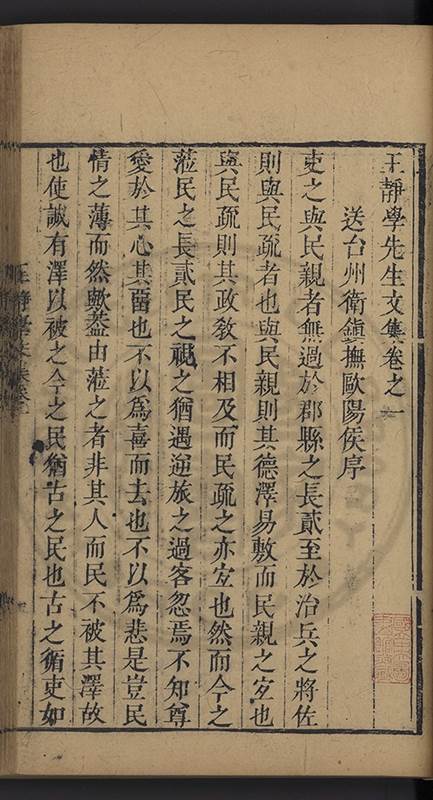 王靜學先生文集卷之一
送台州衛鎮撫歐陽侯序
吏之與民親者無過於郡縣之長貳至於治兵之將佐
則與民疏者也與民親則其德澤易敷而民親之宐也
與民疏則其政敎不相及而民疏之亦宐也然而今之
蒞民之長貳民之視之猶遇逆旅之過客忽焉不知尊
愛於其心其畱也不以爲喜而去也不以爲悲是豈民
情之薄而然歟葢由蒞之者非其人而民不被其澤故
也使誠有澤以被之今之民猶古之民也古之循吏如